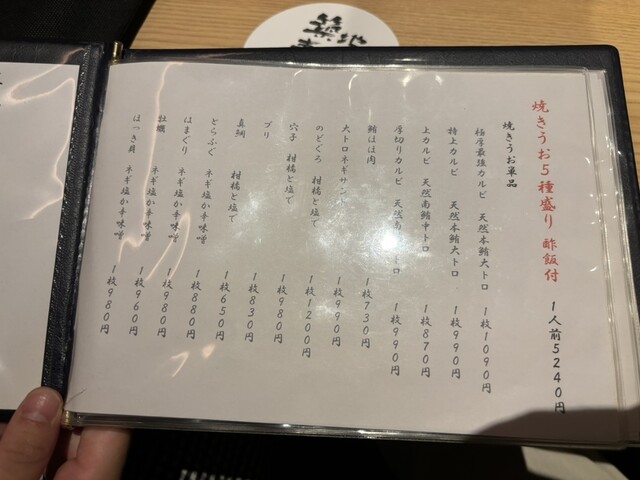 築地
焼きうお5種盛り 酢飯付 1人前5240円
焼きうお単品
極厚最強カルビ 天然本鮪大トロ 1枚1090円
特上カルビ 天然本鮪大トロ 1枚990円
上カルビ 天然南鮪中トロ 1枚870円
厚切りカルビ 天然南 トロ 1枚990円
鮪ほほ肉 1枚730円
大トロネギサンド 1枚990円
のどぐろ 柑橘と塩で 1枚1200円
穴子 柑橘と塩で 1枚980円
ブリ 1枚830円
真鯛 柑橘と塩で 1枚650円
とらふぐ ネギ塩か辛味噌 1枚880円
はまぐり ネギ塩か辛味噌 1枚980円
牡蠣 ネギ塩か辛味噌 1枚960円
ほっき貝 ネギ塩か辛味噌 1枚980円